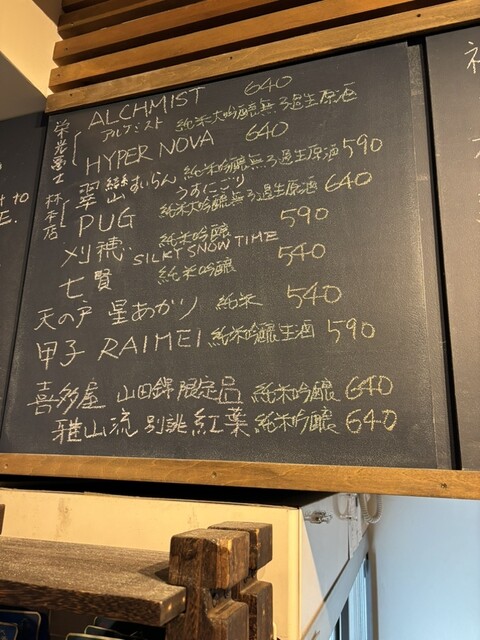 栄光冨士
ALCHMIST 640
アルケミスト 純米大吟醸無ろ過生原酒
HYPER NOVA 640
純米吟醸無ろ過生原酒 590
林本店
翠嵐 すいらん うすにごり
山
純米大吟醸無ろ過生原酒 640
PUG
純米吟醸 590
刈穂 SILKY SNOW TIME
七賢 純米吟醸 540
天の戸 星あかり 純米 540
甲子 RAIMEI 純米吟醸生酒 590
喜多屋 山田錦限定品 純米吟醸 640
雅山流 別誂 紅葉 純米吟醸 640
to
E.